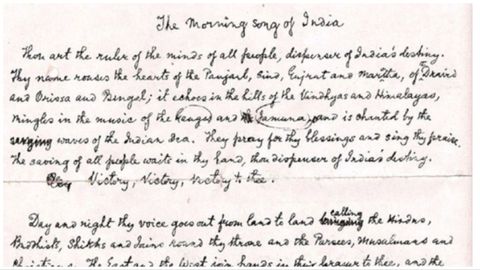 The Morning song of India
Thou art the ruler of the minds of all people, dispenser of India's destiny.
Thy name rouses the hearts of the Panjarb, Sind, Gujrat and Maratta, of Dravid
and Orissa and Bengal; it echoes in the hills of the Vindhyas and Himalayas,
mingles in the music of the Ganges and the Jamuna, and is chanted by the
waves of the Indian Sea. They pray for thy blessings and sing thy praise.
The saving of all people waits in thy hand, thou dispenser of India's destiny.
Victory, Victory, Victory to thee.
Day and night thy voice goes out from land to land calling the Hindus,
Buddhists, Shikhs and Jains round thy throne and the Parsees, Musulmans and
Christians. The East and the West join hands in their prayer to thee, and the